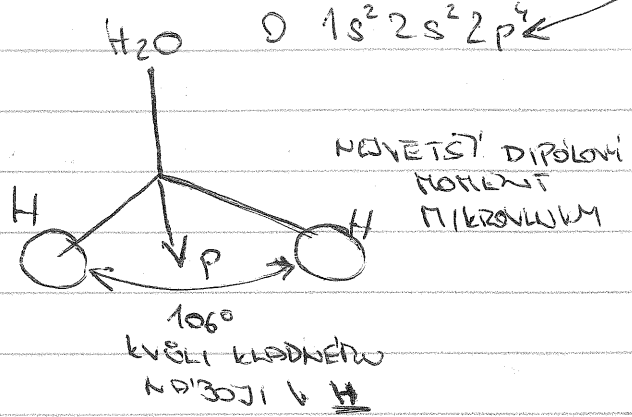 H₂O
O 1s² 2s² 2p⁴
NEJVĚTŠÍ DIPÓLOVÝ
MOMENT
MIKROVLNKY
H
H
p
106°
KVŮLI KLADNÉMU
NÁBOJI V H